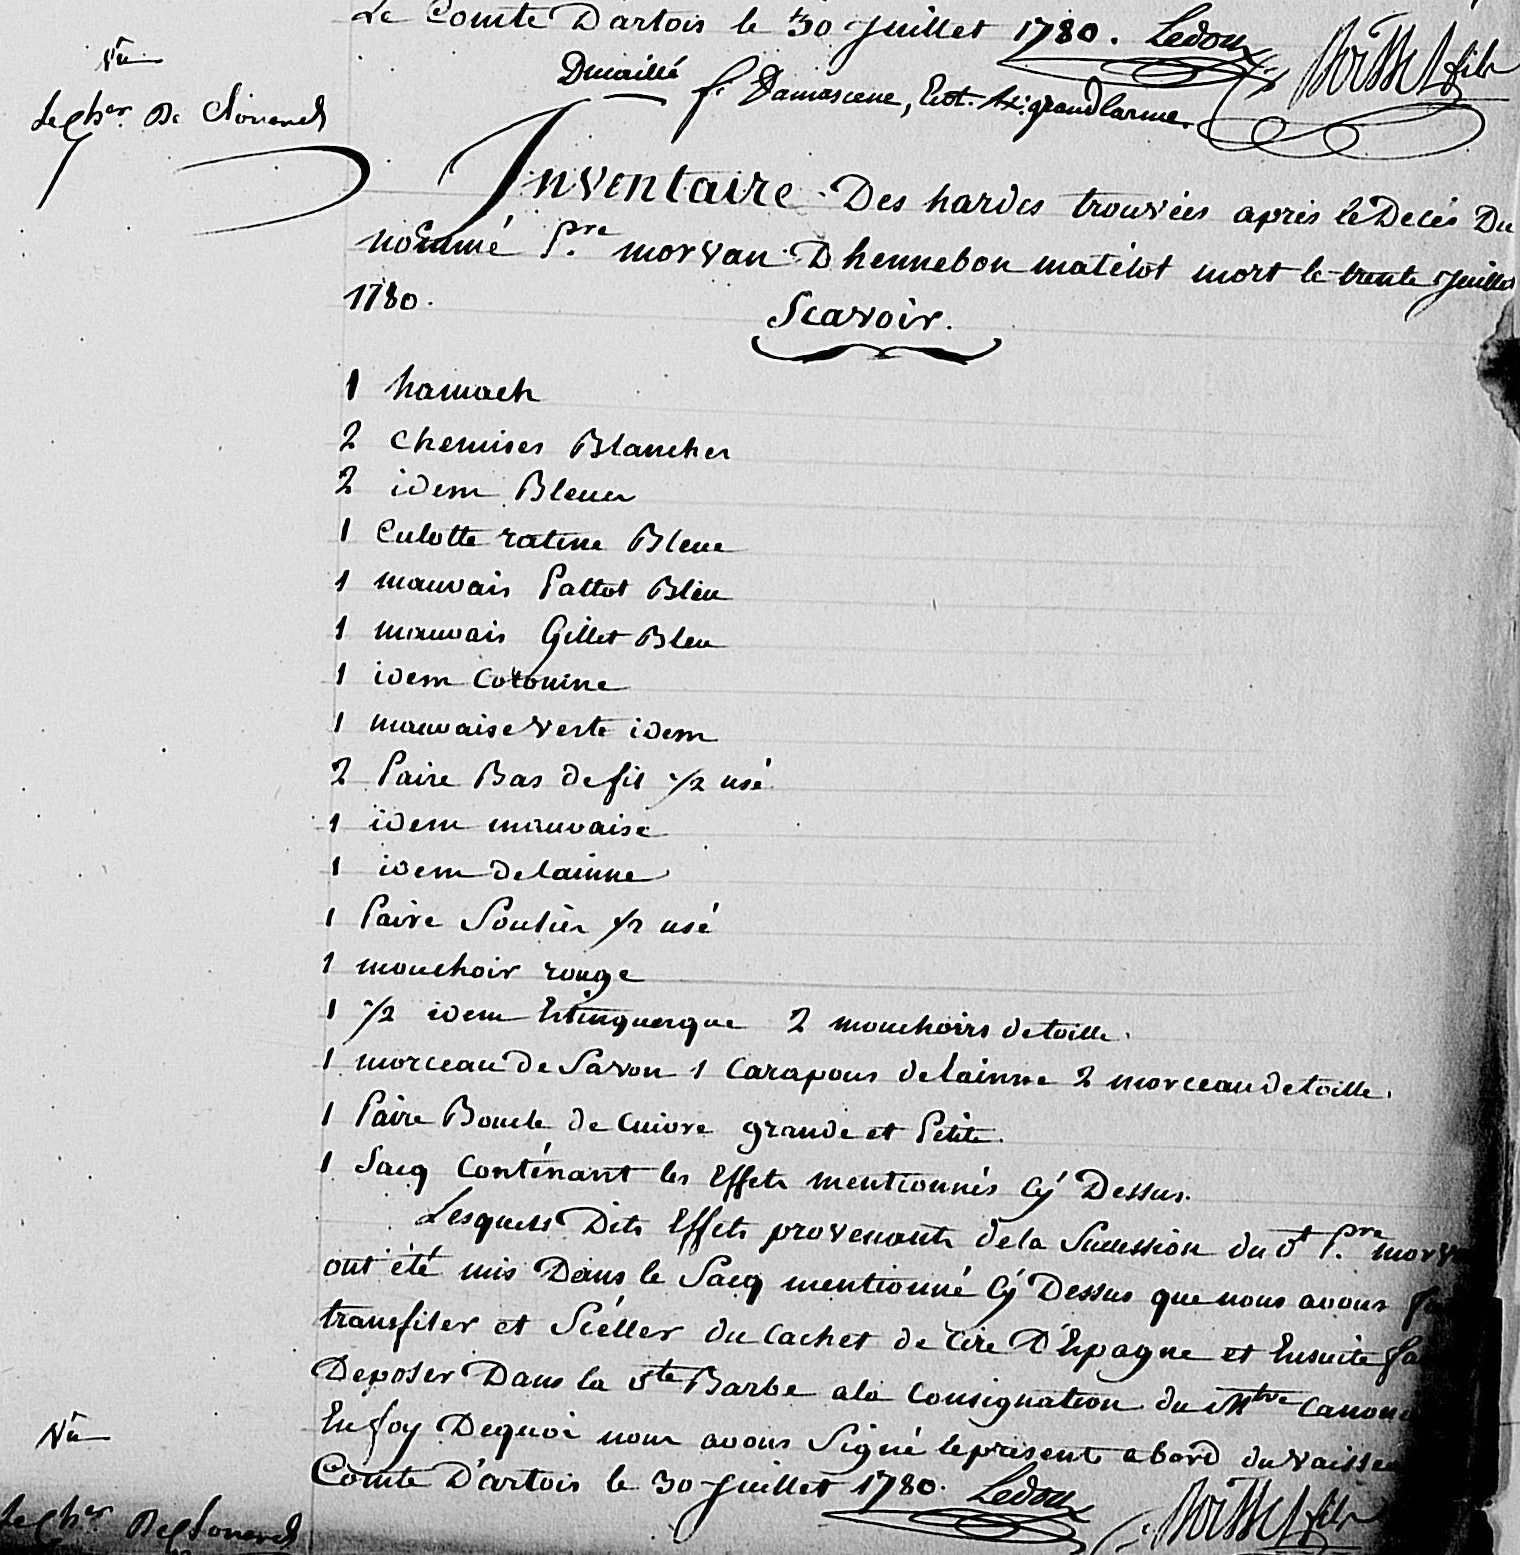 Le Comte Dartois le 30 Juillet 1780. Ledoux
Vu
Le Cher. De
f. Damascene,
Inventaire Des hardes trouvées aprés le Decés Du
nommé P.re morvan D hennebon matelot mort le trente Juillet
1780.
Scavoir.
1 hamack
2 chemises Blanches
2 idem Bleues
1 Culotte ratine Bleue
1 mauvais Paltot Bleu
1 mauvais Gillet Bleu
1 idem Cotonine
1 mauvaise veste idem
2 Paire Bas de fil 1/2 usé
1 idem mauvaise
1 idem de lainne
1 Paire Soulier 1/2 usé
1 mouchoir rouge
1 1/2 idem 2 mouchoirs de toille.
1 morceau de Savon 1 Carapous de lainne 2 morceau de toille.
1 Paire Boucle de Cuivre grande et Petite.
1 Sacq Conténant les Effets mentionnés Cÿ Dessus.
Lesquels Dits Effets provenants de la Sucession du dt P.re
ont été mis Dans le Sacq mentionné Cÿ Dessus que nous avons
transfiler et Scéller du Cachet de Cire D'Espagne et Ensuite
Deposer Dans la Ste Barbe a la Consignation du Mtre
En foy Dequoi nous avons Signé le présent a bord du
Comte D'artois le 30 Juillet 1780. Ledoux
Vu
Le Cher.